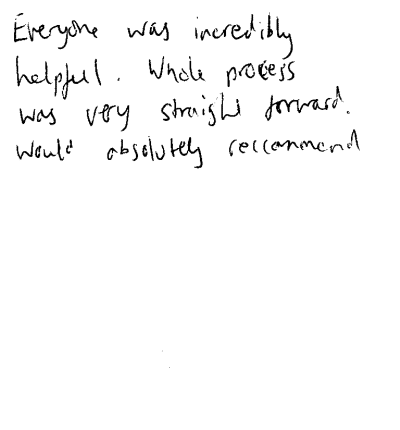 Everyone was incredibly
helpful. Whole process
was very straight forward.
Would absolutely reccommend